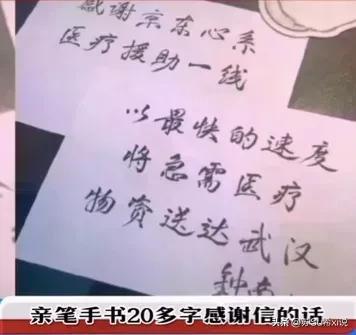 感谢京东心系
医疗援助一线
以最快的速度
将急需医疗
物资送达武汉
钟
亲笔手书20多字感谢信的话